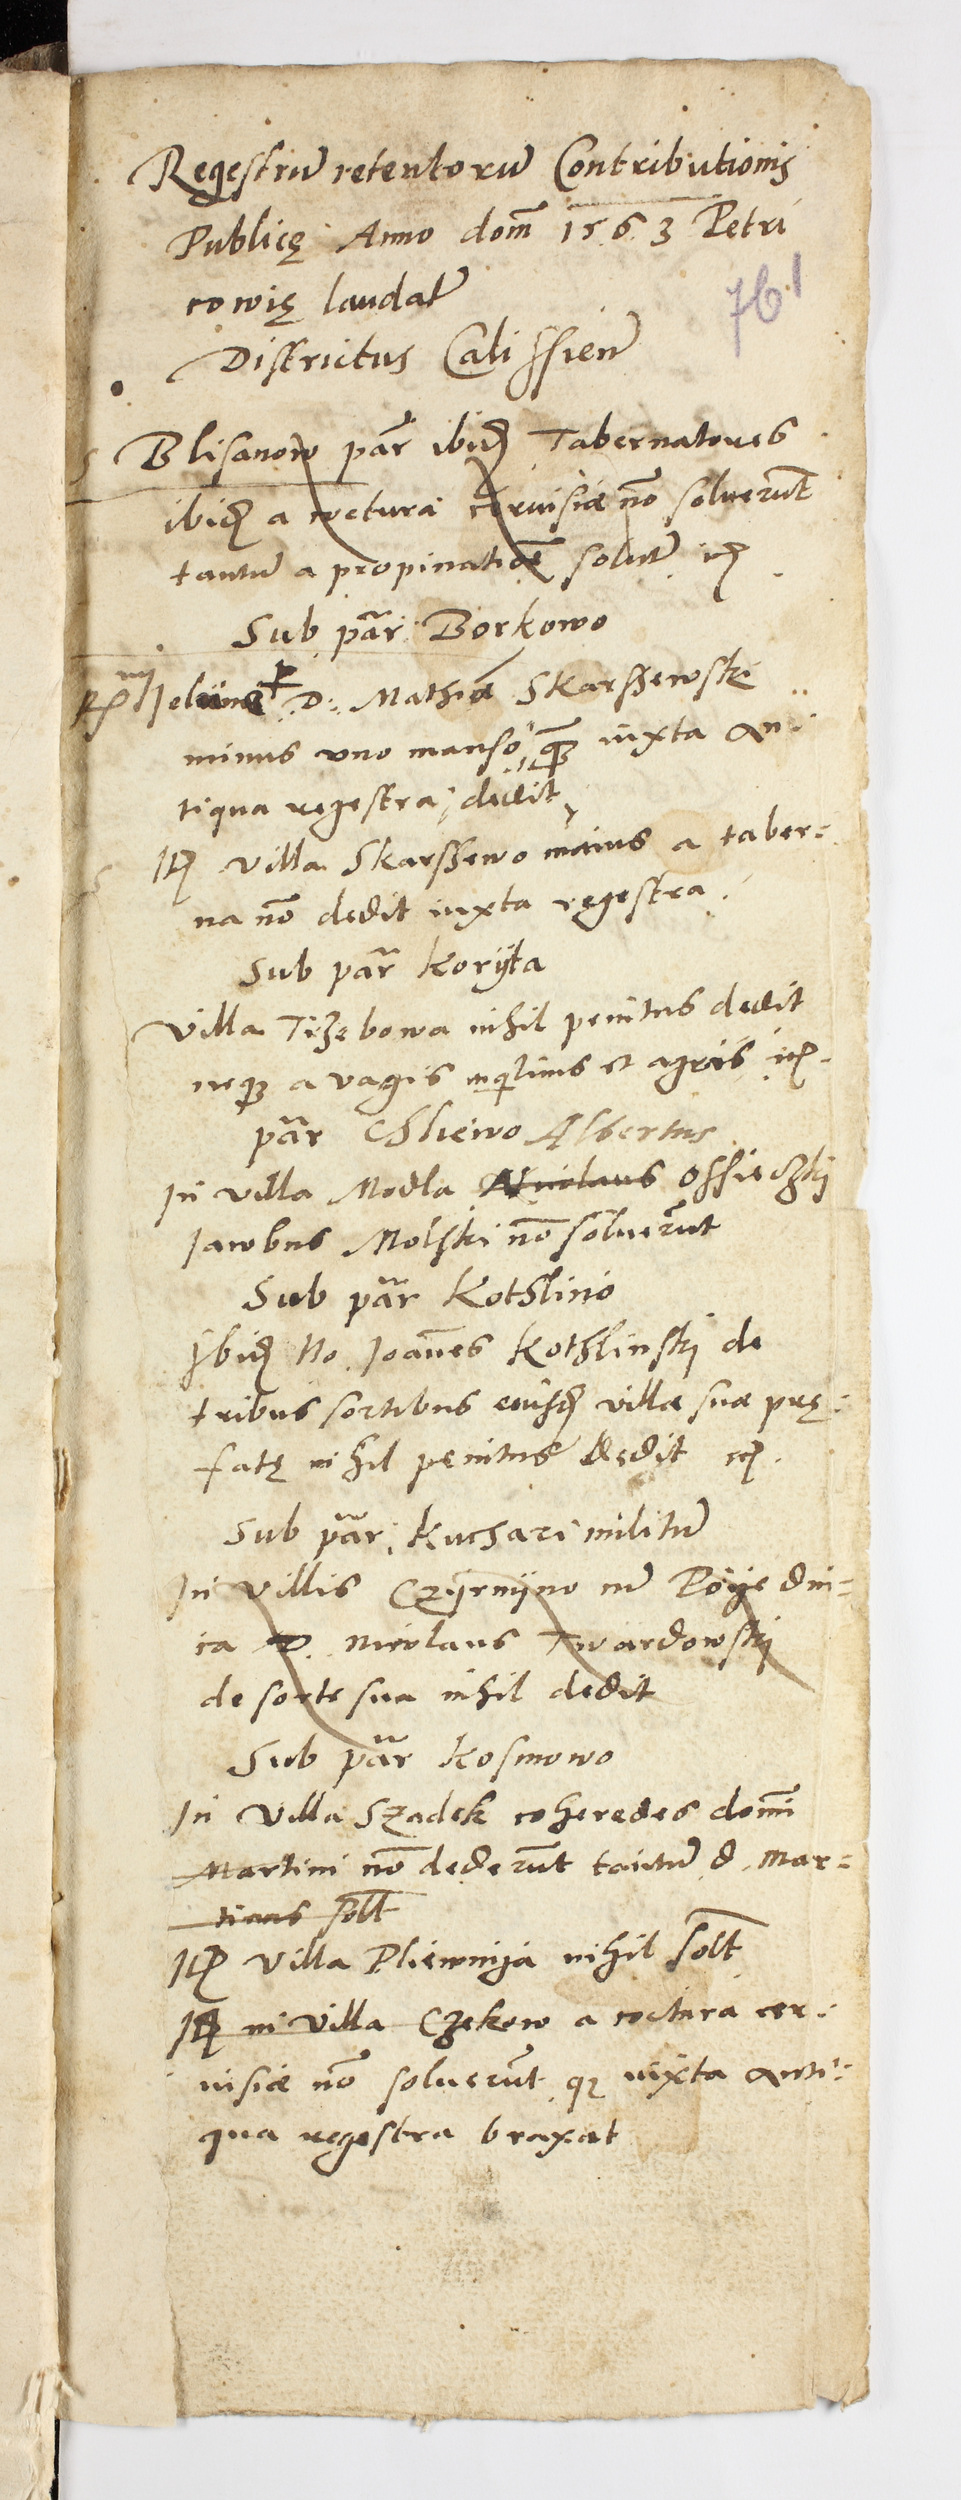 Regestrū retentorū Contributionis
Publicę Anno dom̄ 1563 Petri
cowię laudat̄
761
Districtus Calissien̄
Blisanow par̄ ibid̄ Tabernatores
ibid̄ a coctura ceruisiæ nō soluerūt
tantū a propinatiōe soluūt
Sub par̄ Borkowo
D. Mathiæ Skarssewski
minus uno manso q̄ iuxta an:
tiqua regestra dedit
It̄ villa Skarssewo maius a taber:
na nō dedit iuxta regestra
Sub par̄ Korÿta
Villa Trzebowa nihil penitus dedit
neq̄ a vagis inquilinis et agris
par̄ Chliewo Albertus
In villa Modla Nicolaus Ossieczki
Jacobus Molski nō soluerūt
Sub par̄ Kothlino
Ibid̄ No. Joānes Kothlinski de
tribus sortibus eiusd̄ villæ suæ prę:
fatę nihil penitus dedit
Sub par̄ Kuchari militū
In villis Czÿrmÿno Poÿedni:
ca D. Nicolaus Twardowski
de sorte sua nihil dedit
Sub par̄ Kosmowo
In villa Szadek coheredes domī
Martini nō dederūt tantū d. Mar:
tinus sol̄t
It̄ villa Pliewnÿa nihil sol̄t
It̄ in villa Czekow a coctura cer:
uisiæ nō soluerūt q iuxta anti:
qua regestra braxat